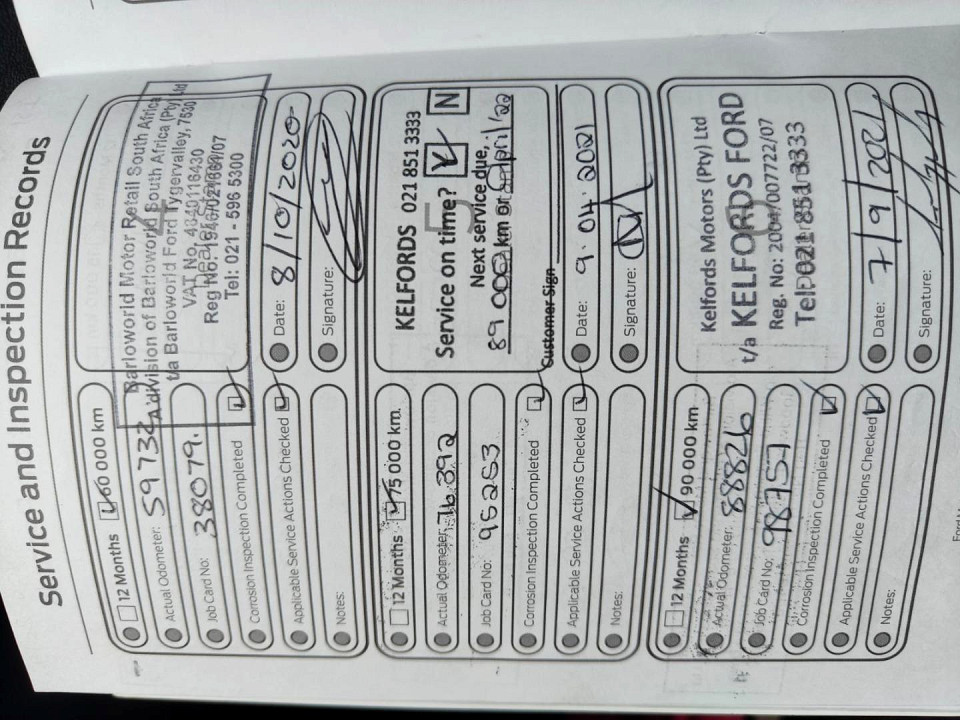 Service and Inspection Records
12 Months ✓ 60 000 km
Actual Odometer: 59732
Job Card No: 38079.
Corrosion Inspection Completed ✓
Applicable Service Actions Checked ✓
Notes:
Barloworld Motor Retail South Africa
A division of Barloworld South Africa (Pty) Ltd
t/a Barloworld Ford Tygervalley, 7530
VAT No. 4840116430
Tel: 021 - 596 5300
Date: 8/10/2020
Signature:
12 Months ✓ 75 000 km
Actual Odometer: 76392
Job Card No: 95253
Corrosion Inspection Completed ✓
Applicable Service Actions Checked ✓
Notes:
KELFORDS 021 851 3333
Service on time? Y N
Next service due,
89 000 km or April/22
Customer Sign
Date: 9.04.2021
Signature:
12 Months ✓ 90 000 km
Actual Odometer: 88826
Job Card No: 98757
Corrosion Inspection Completed ✓
Applicable Service Actions Checked ✓
Notes:
Kelfords Motors (Pty) Ltd
t/a KELFORDS FORD
Reg. No: 2004/007722/07
Tel: 021 851 3333
Date: 7/9/2021
Signature: